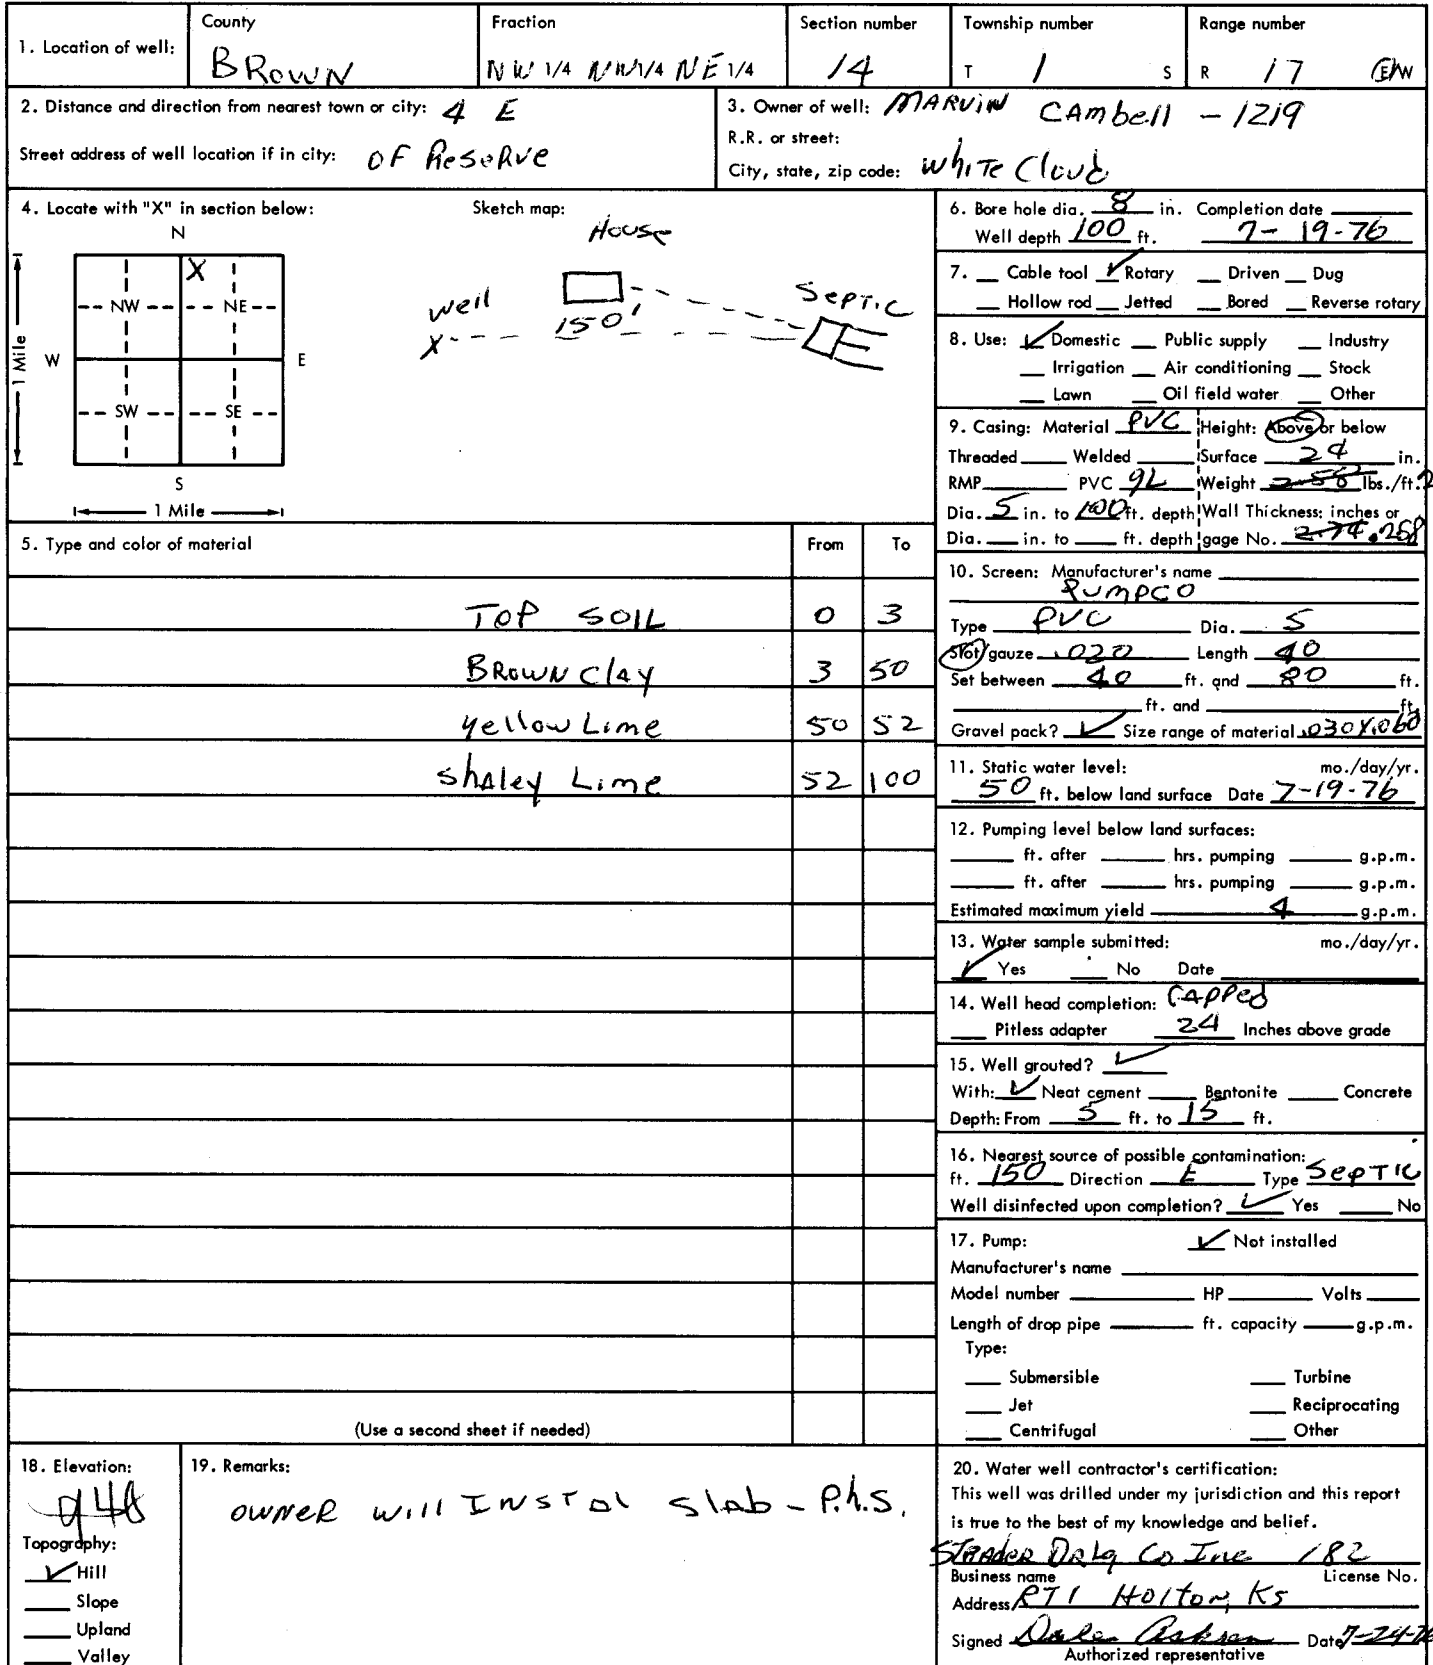 1. Location of well:
County
BROWN
Fraction
NW 1/4 NW 1/4 NE 1/4
Section number
14
Township number
T 1 S
Range number
R 17 E/W
2. Distance and direction from nearest town or city: 4 E
Street address of well location if in city: OF Reserve
3. Owner of well: MARVIN CAMbell - 1219
R.R. or street:
City, state, zip code: White Cloud
4. Locate with "X" in section below:
N
X
NW NE
W E
SW SE
S
1 Mile
1 Mile
Sketch map:
House
well
X
150'
SepTic
5. Type and color of material From To
TOP SOIL 0 3
BROWN Clay 3 50
yellow Lime 50 52
shaley Lime 52 100
(Use a second sheet if needed)
6. Bore hole dia. 8 in. Completion date
Well depth 100 ft. 7-19-76
7. Cable tool ✓ Rotary Driven Dug
Hollow rod Jetted Bored Reverse rotary
8. Use: ✓ Domestic Public supply Industry
Irrigation Air conditioning Stock
Lawn Oil field water Other
9. Casing: Material PVC Height: Above or below
Threaded Welded Surface 24 in.
RMP PVC 9L Weight lbs./ft.
Dia. 5 in. to 100 ft. depth Wall Thickness: inches or
Dia. in. to ft. depth gage No. .258
10. Screen: Manufacturer's name
PUMPCO
Type PVC Dia. 5
Slot/gauze .020 Length 40
Set between 40 ft. and 80 ft.
ft. and ft.
Gravel pack? ✓ Size range of material .030X.060
11. Static water level: mo./day/yr.
50 ft. below land surface Date 7-19-76
12. Pumping level below land surfaces:
ft. after hrs. pumping g.p.m.
ft. after hrs. pumping g.p.m.
Estimated maximum yield 4 g.p.m.
13. Water sample submitted: mo./day/yr.
✓ Yes No Date
14. Well head completion: CAPPed
Pitless adapter 24 Inches above grade
15. Well grouted? ✓
With: ✓ Neat cement Bentonite Concrete
Depth: From 5 ft. to 15 ft.
16. Nearest source of possible contamination:
ft. 150 Direction E Type SepTIC
Well disinfected upon completion? ✓ Yes No
17. Pump: ✓ Not installed
Manufacturer's name
Model number HP Volts
Length of drop pipe ft. capacity g.p.m.
Type:
Submersible Turbine
Jet Reciprocating
Centrifugal Other
18. Elevation:
Topography:
✓ Hill
Slope
Upland
Valley
19. Remarks:
owner will INSTal slab - P.h.S.
20. Water well contractor's certification:
This well was drilled under my jurisdiction and this report
is true to the best of my knowledge and belief.
STRADER DRLG Co Inc 182
Business name License No.
Address RT1 Holton, Ks
Signed Date 7-24-76
Authorized representative